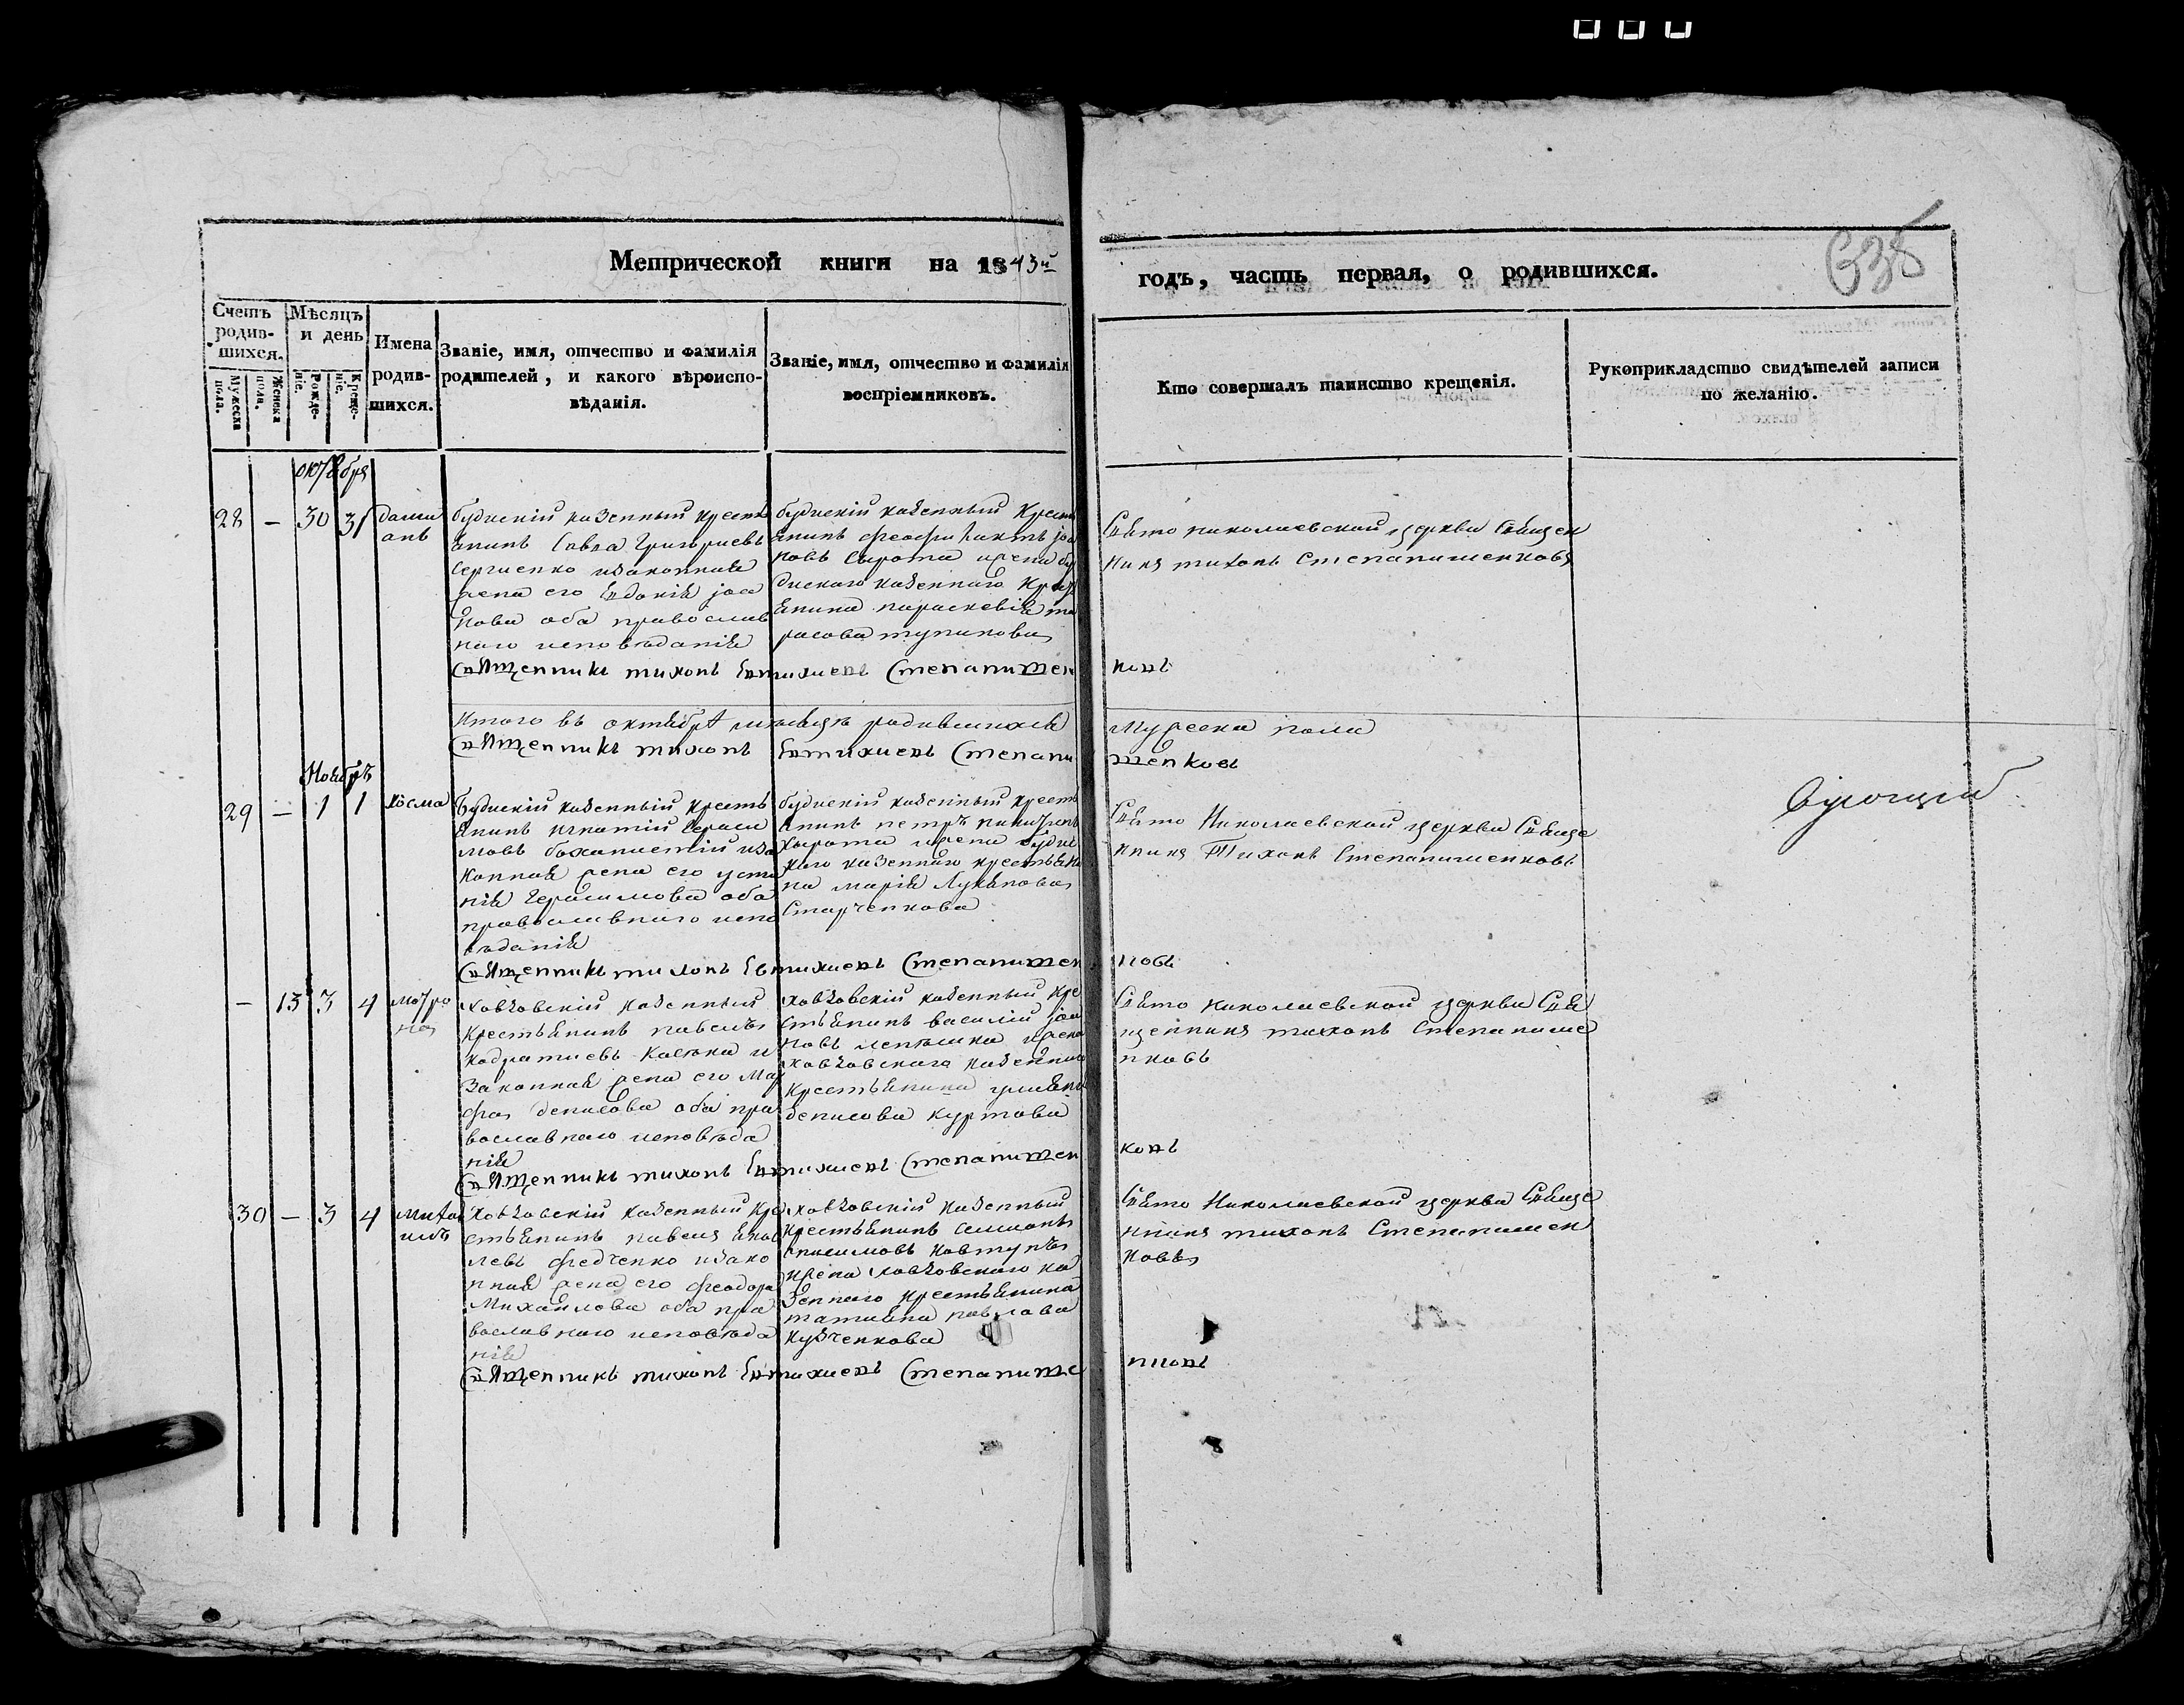 Метрической книги на 1843й
годъ, часть первая, о родившихся.
Счетъ родив-шихся.
Мѣсяцъ и день
Имена родив-шихся.
Званіе, имя, отчество и фамилія
родителей, и какого вѣроиспо-
вѣданія.
Званіе, имя, отчество и фамилія
воспріемниковъ.
Кто совершалъ таинство крещенія.
Рукоприкладство свидѣтелей записи
по желанію.
Мужеска пола.
Женска пола.
Рожде-ніе.
Креще-ніе.
октября
28 — 30 31 дами
анъ
будискій казенный кресть
янинъ Савва Григориевъ
Сергиенко изаконная
жена его Евдокія јоа
нова оба православ
наго исповѣданія
будискій казенный Кресть
янинъ Феофилактъ јоа
новъ Сырота ижена бу
дискаго казеннаго Крест
янина параскевія та
расова тупикова
Свято николаевской церкви Священ
никъ тихонъ Степанишенковъ
Священникъ тихонъ Евтихиевъ Степанишен
ковъ
Итого въ октябрѣ мѣсяцѣ родившихся
Мужеска пола
Священникъ тихонъ Евтихиевъ Степани
шенковъ
Ноябрь
29 — 1 1 косма
Будискій казенный кресть
янинъ игнатій Гераси
новъ изa
конная жена его усти
нія Герасимова оба
православнаго испо
вѣданія
будискій казенный кресть
янинъ петръ
Сырота ижена будис
каго казеннаго крестьяни
на марія Лукьянова
Старченкова
Свято Николаевской церкви Свяще
нникъ Тихонъ Степанишенковъ
Священникъ тихонъ Евтихиевъ Степанишен
ковъ
— 13 3 4 мотро
на
ховзовскій казенный
крестьянинъ павелъ
кодратиевъ Касюка и
Законная жена его Мар
фа денисова оба пра
вославнаго исповѣда
нія
ховзовскій казенный кре
стьянинъ василій јоа
новъ ижена
ховзовскаго казеннаго
Крестьянина улияна
денисова куртова
Свято николаевской церкви Свя
щенникъ тихонъ Степанише
нковъ
Священникъ тихонъ Евтихиевъ Степанишен
ковъ
30 — 3 4 михаи
илъ
Ховзовскій казенный Кре
стьянинъ павелъ яков
левъ федченко изако
нная жена его феодора
Михайлова оба пра
вославнаго исповѣда
нія
ховзовскій казенный
крестьянинъ симионъ
онисимовъ ковтунъ
ижена ховзовскаго ка
зеннаго крестьянина
татияна павлова
кузченкова
Свято Николаевской церкви Свяще
нникъ тихонъ Степанишен
ковъ
Священникъ тихонъ Евтихиевъ Степанише
нковъ